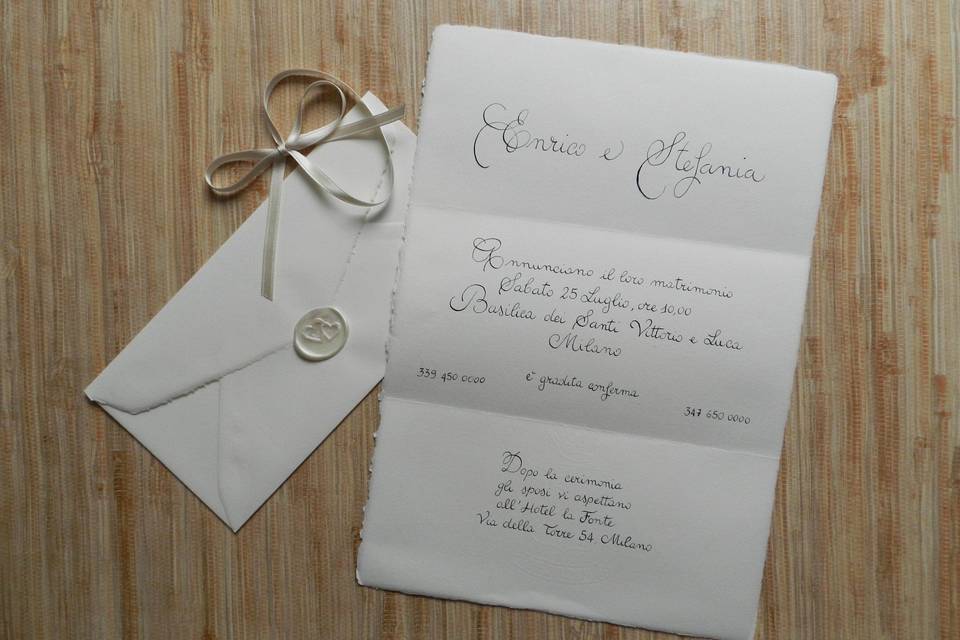 Enrico e Stefania
Annunciano il loro matrimonio
Sabato 25 Luglio, ore 10,00
Basilica dei Santi Vittorio e Luca
Milano
è gradita conferma
339 450 0000
347 650 0000
Dopo la cerimonia
gli sposi vi aspettano
all'Hotel la Fonte
Via della Torre 54 Milano